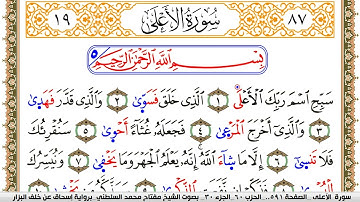 ١٩ سُورَةُ الأَعْلَى ٨٧
بِسْمِ اللَّهِ الرَّحْمَٰنِ الرَّحِيمِ
سَبِّحِ اسْمَ رَبِّكَ الْأَعْلَى ١ الَّذِي خَلَقَ فَسَوَّىٰ ٢ وَالَّذِي قَدَّرَ فَهَدَىٰ
٣ وَالَّذِي أَخْرَجَ الْمَرْعَىٰ ٤ فَجَعَلَهُ غُثَاءً أَحْوَىٰ ٥ سَنُقْرِئُكَ
فَلَا تَنسَىٰ ٦ إِلَّا مَا شَاءَ اللَّهُ إِنَّهُ يَعْلَمُ الْجَهْرَ وَمَا يَخْفَىٰ ٧ وَنُيَسِّرُكَ
سورة الأعلى الصفحة ٥٩١.. الحزب ٦٠ الجزء ٣٠ بصوت الشيخ مفتاح محمد السلطني برواية إسحاق عن خلف البزار